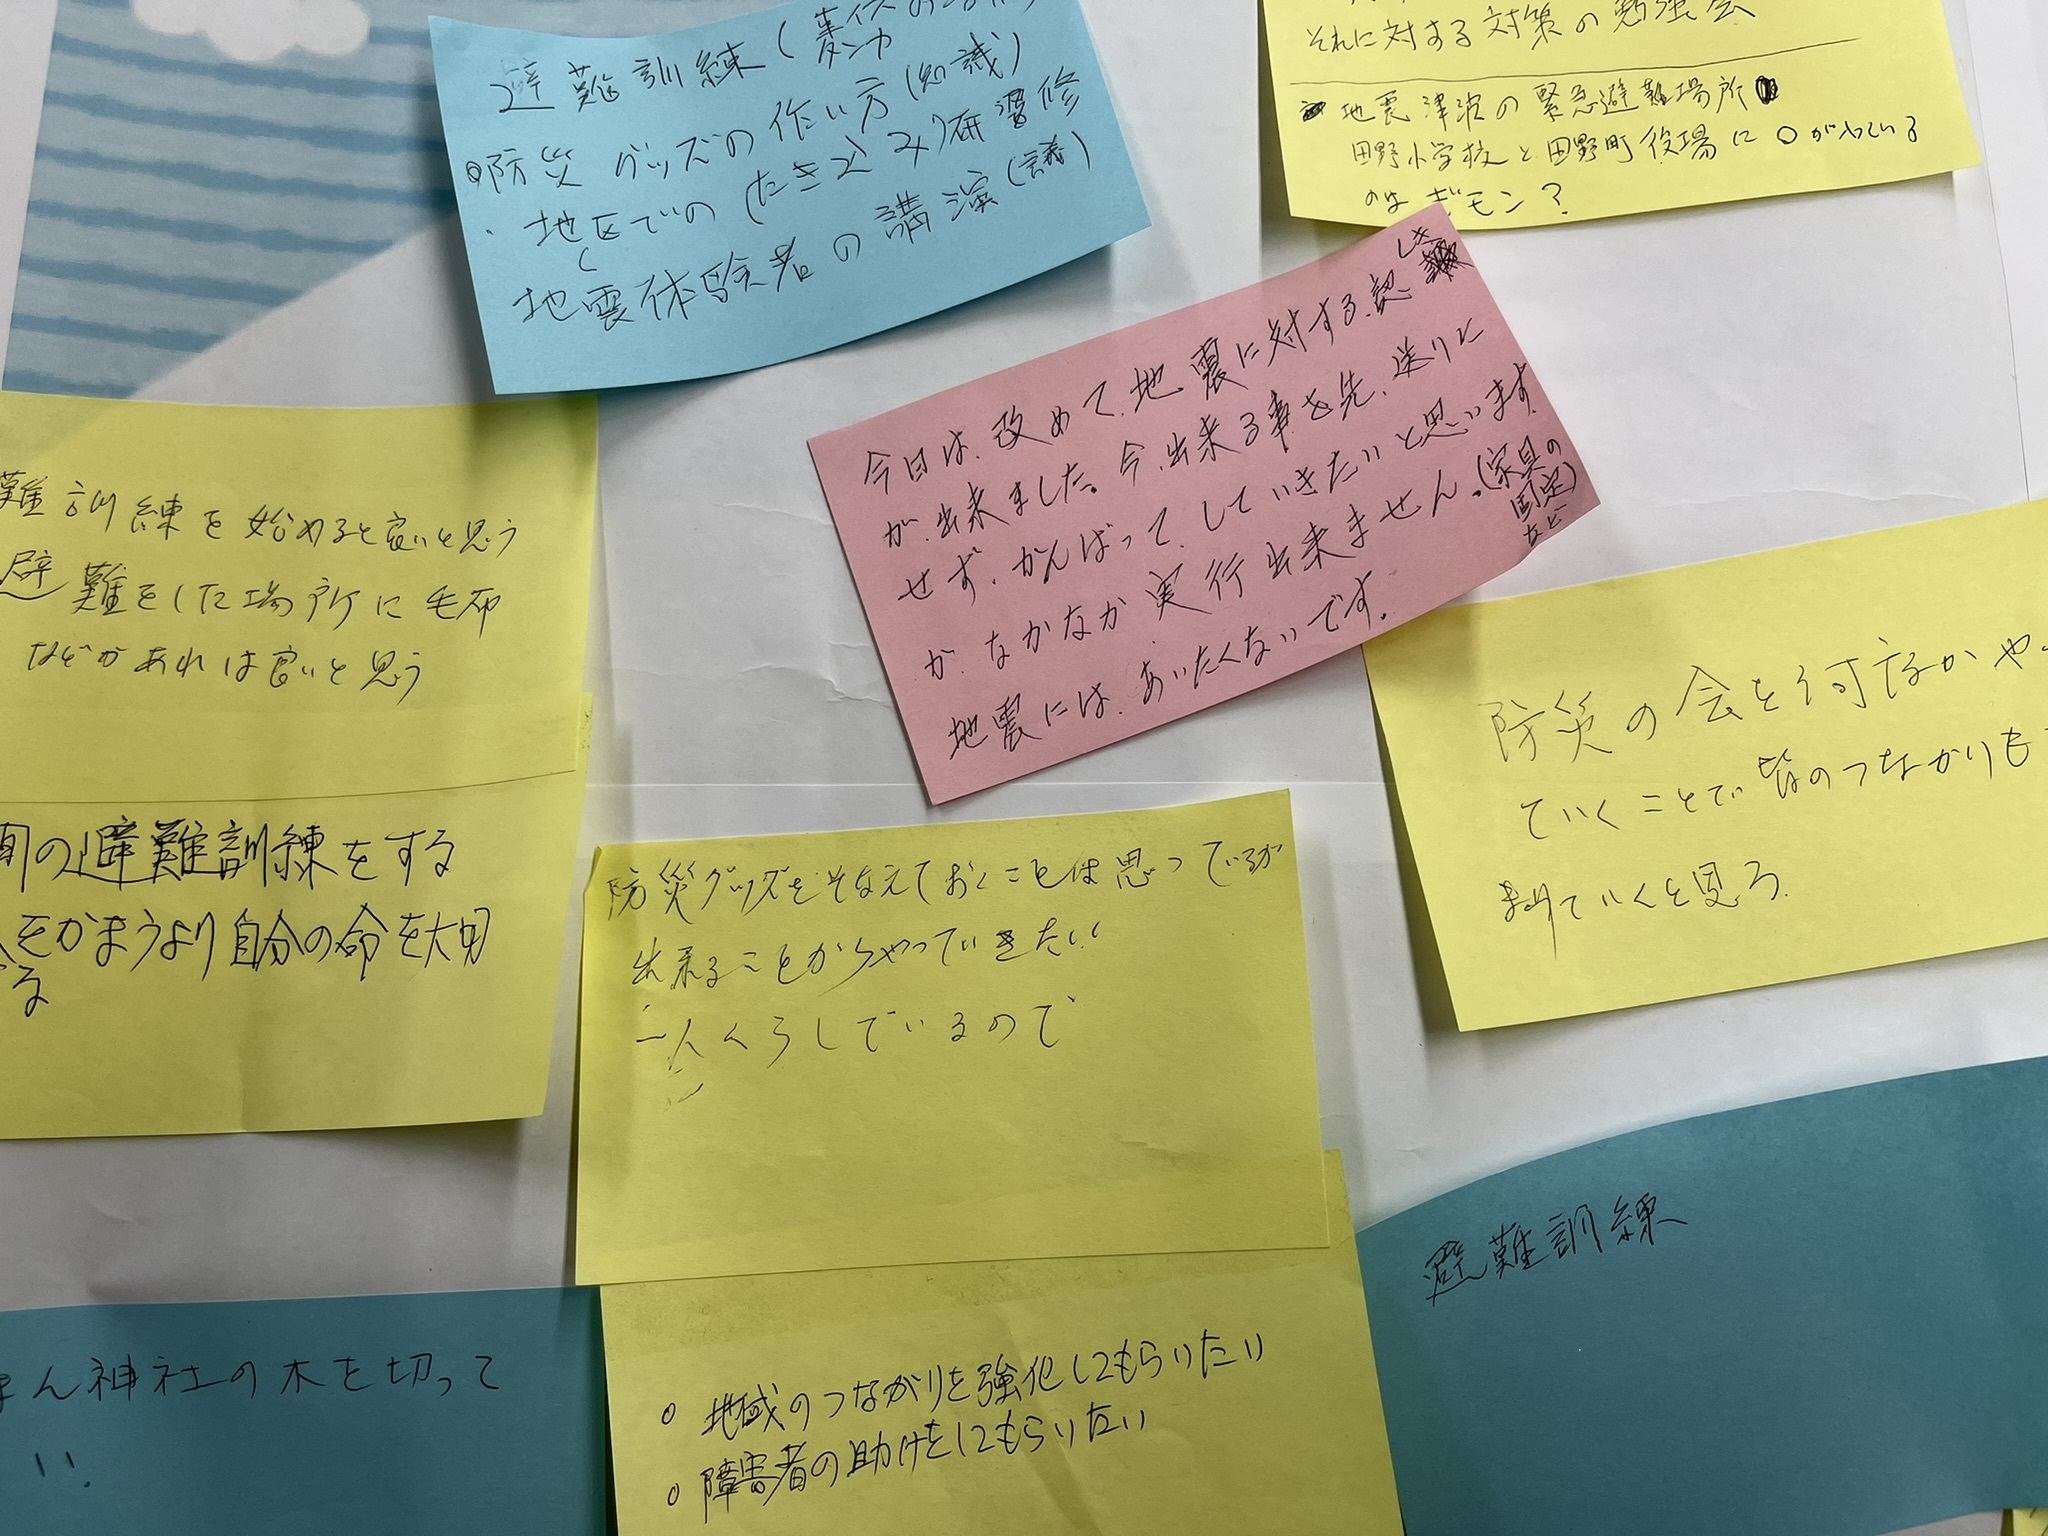 避難訓練(
防災グッズの作い方(知識)
・地区での(たき込み)研習修
地震体験者の講演(講)
それに対する対策の勉強会
地震津波の緊急避難場所
田野小学校と田野町役場に○がついている
のはギモン?
今日は、改めて、地震に対する、認しき
が、出来ました。今、出来る事を先、送りに
せず、がんばって、して いきたいと思います
が、なかなか実行出来ません。(家具の
固定)
など
地震には、あいたくないです。
難訓練を始めると良いと思う
避難をした場所に毛布
などがあれば良いと思う
間の避難訓練をする
をかまうより自分の命を大切
る
防災グッズをそなえておくことは思っているが
出来ることからやっていきたい
一人くらしでいるので
防災の会を
ていくことで皆のつながりも
ていくと思う。
避難訓練
ん神社の木を切って
い。
○ 地域のつながりを強化してもらいたい
○ 障害者の助けをしてもらいたい